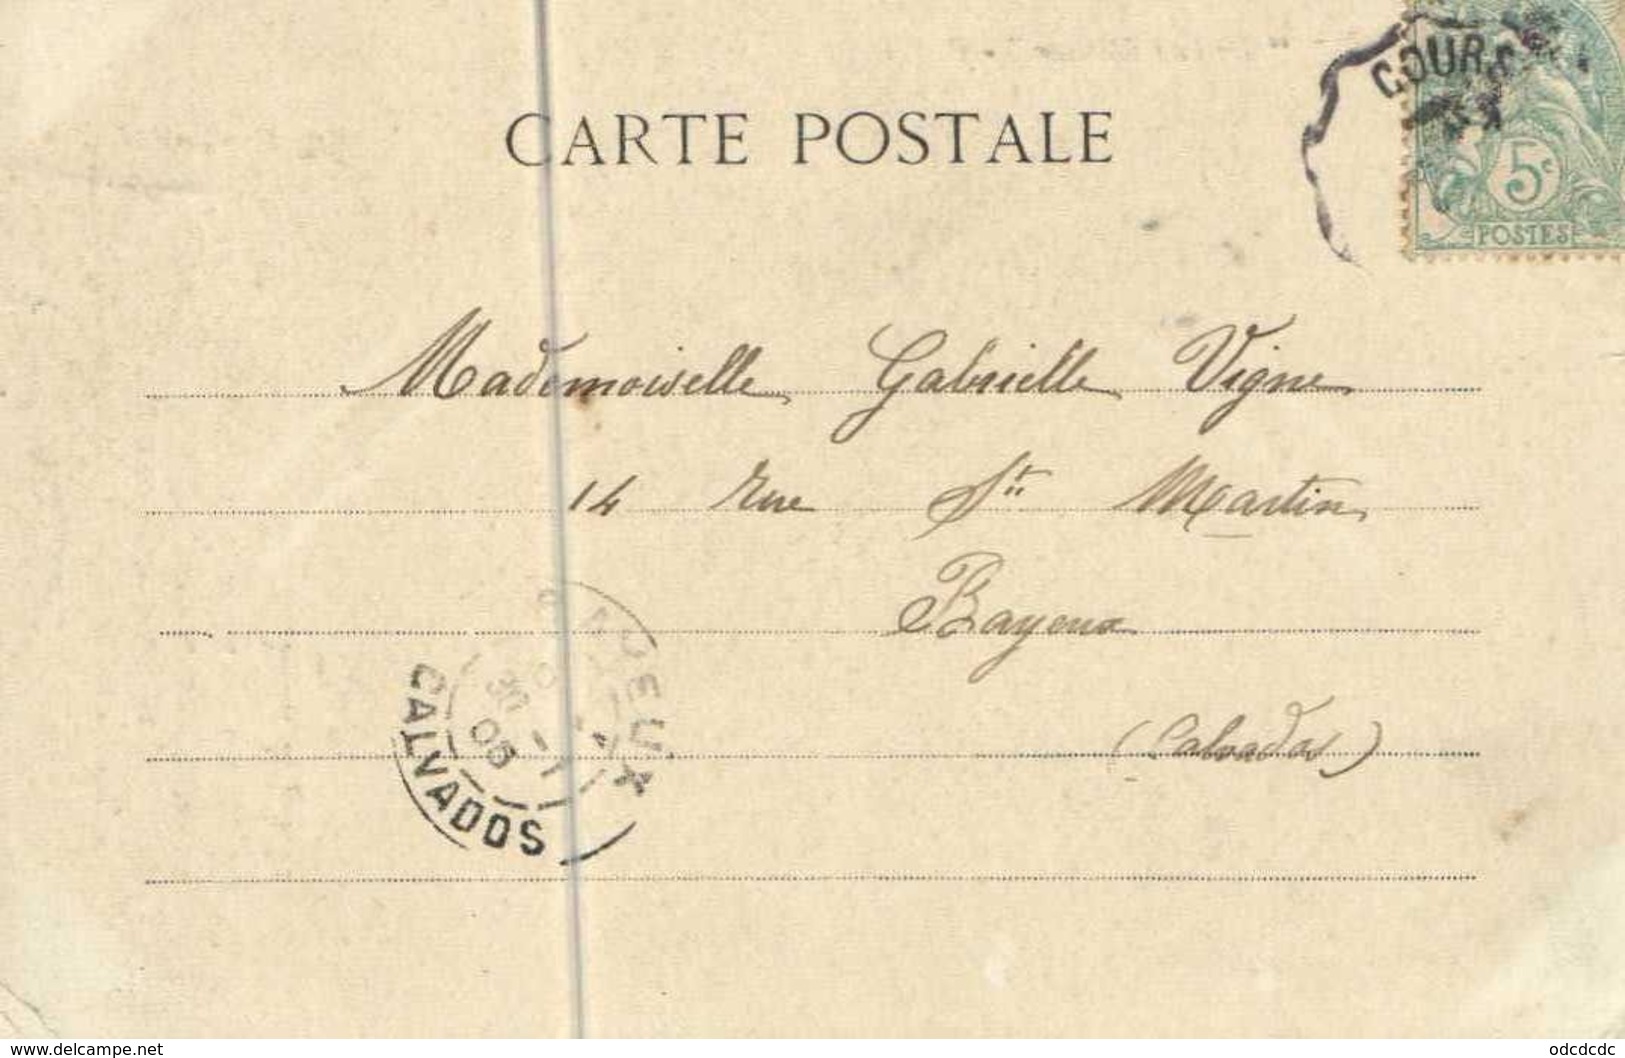 COURS
CARTE POSTALE
5c
POSTES
Mademoiselle Gabrielle Vigne
14 rue St Martin
Bayeux
(Calvados)
CALVADOS
30 - 1
05
www.delcampe.net
odcdcdc